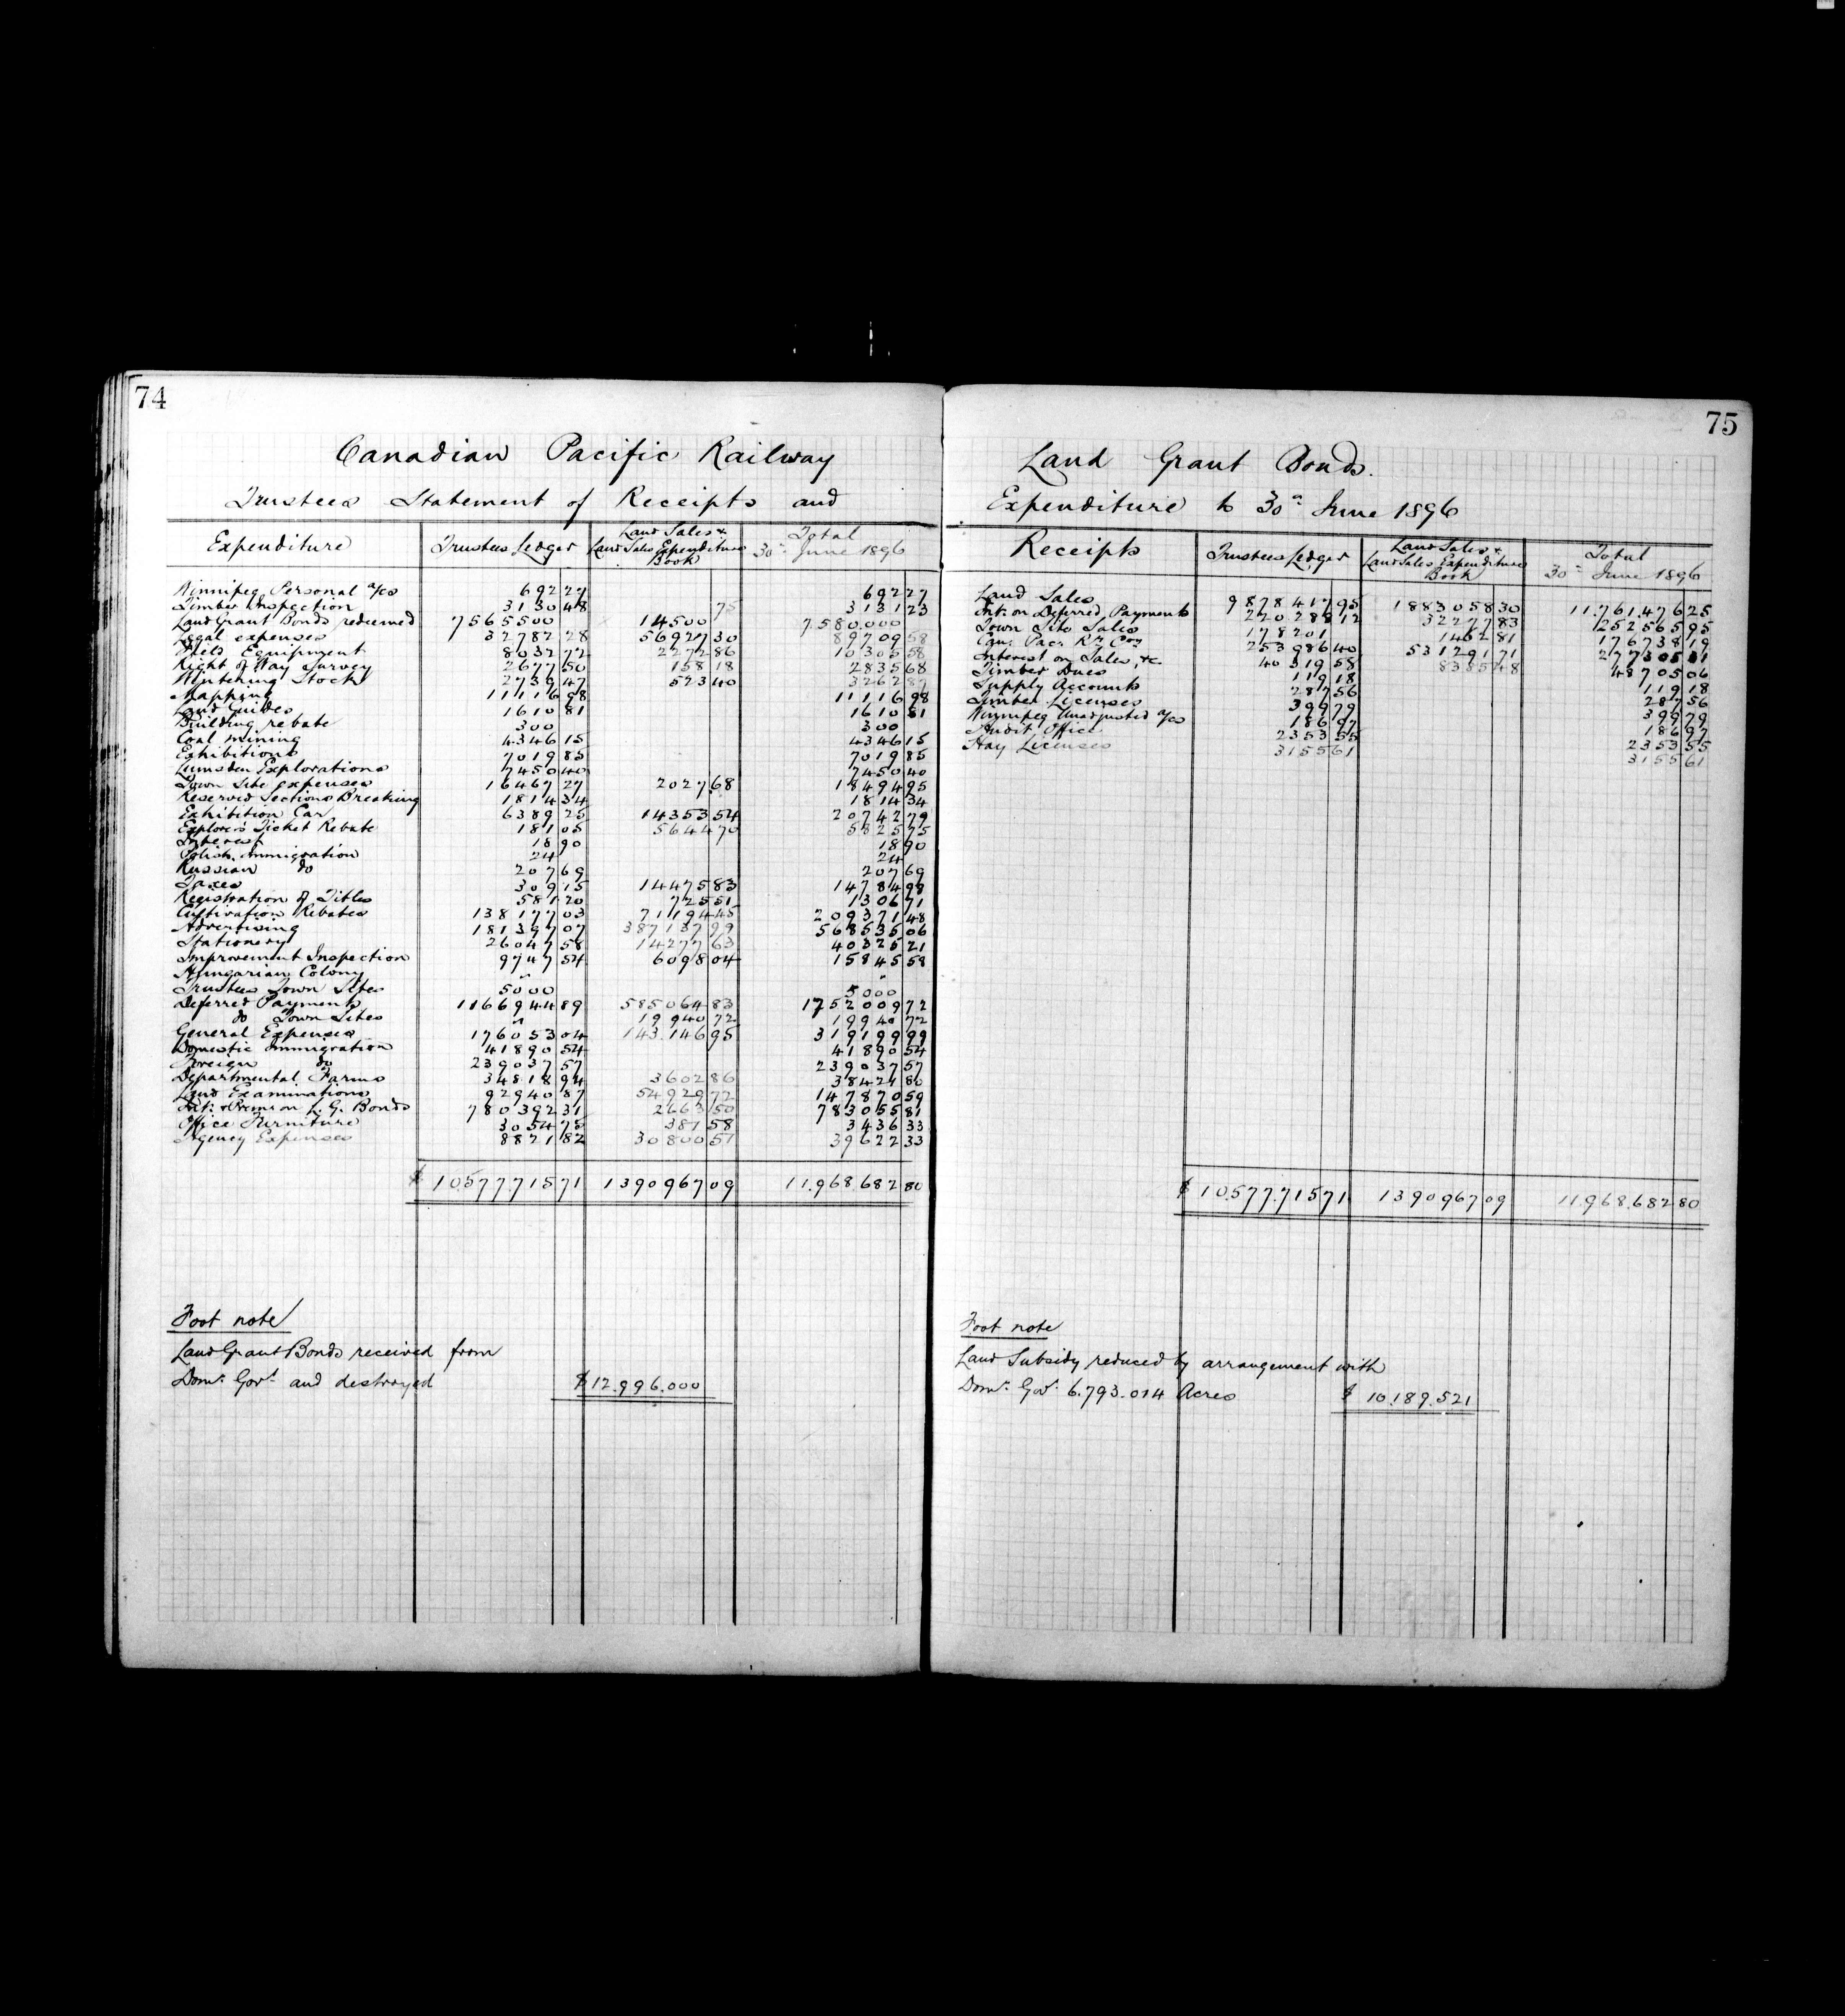 74
Canadian Pacific Railway
Trustees Statement of Receipts and
Expenditure | Trustees Ledger | Land Sales & Land Sales Expenditure Book | Total 30th June 1896
Winnipeg Personal a/cs 692 27 692 27
Timber Inspection 3130 48 75 3131 23
Land Grant Bonds redeemed 7565500 14500 7.580.000
Legal expenses 32782 28 56927 30 89709 58
Field Equipment 8032 72 2272 86 10305 58
Right of Way Survey 2677 50 158 18 2835 68
Wintering Stock 2739 47 523 40 3262 87
Mapping 11116 98 11116 98
Land Guides 1610 81 1610 81
Building rebate 300 300
Coal mining 4346 15 4346 15
Exhibitions 7019 85 7019 85
Lumsden Explorations 7450 40 7450 40
Town Site expenses 16467 27 2027 68 18494 95
Reserved Sections Breaking 1814 34 1814 34
Exhibition Car 6389 25 14353 54 20742 79
Explorers Ticket Rebate 181 05 5644 70 5825 75
Interest 18 90 18 90
Polish Immigration 24 24
Russian do 207 69 207 69
Taxes 309 15 14475 83 14784 98
Registration of Titles 581 20 725 51 1306 71
Cultivation Rebates 138177 03 71194 45 209371 48
Advertising 181397 07 387137 99 568535 06
Stationery 26047 58 14277 63 40325 21
Improvement Inspection 9747 54 6098 04 15845 58
Hungarian Colony " "
Trustees Town Sites 5000 5000
Deferred Payments 1166944 89 585064 83 1752009 72
do Town Sites " 19940 72 19940 72
General Expenses 176053 04 143146 95 319199 99
Domestic Immigration 41890 54 41890 54
Foreign do 239037 57 239037 57
Departmental Farms 34818 94 3602 86 38421 80
Land Examinations 92940 87 54929 72 147870 59
Int: & Prem on L. G. Bonds 780392 31 2663 50 783055 81
Office Furniture 3054 75 381 58 3436 33
Agency Expenses 8821 82 30800 51 39622 33
$ 10.577.715 71 1390967 09 11.968.682 80
Foot note
Land Grant Bonds received from
Domn. Govt. and destroyed $12.996.000
75
Land Grant Bonds.
Expenditure to 30th June 1896
Receipts | Trustees Ledger | Land Sales & Land Sales Expenditure Book | Total 30th June 1896
Land Sales 9878417 95 1883058 30 11.761.476 25
Int: on Deferred Payments 220288 12 32277 83 252565 95
Town Site Sales 178201 1462 81 176738 19
Can. Pac. Ry Coy 253986 40 531291 71 277305 31
Interest on Sales, &c. 40319 58 8385 48 48705 06
Timber Dues 119 18 119 18
Supply Accounts 287 56 287 56
Timber Licenses 399 79 399 79
Winnipeg Unadjusted a/cs 186 97 186 97
Audit Office 2353 55 2353 55
Hay Licenses 3155 61 3155 61
$ 10.577.715 71 1390967 09 11.968.682 80
Foot note
Land Subsidy reduced by arrangement with
Domn. Govt. 6.793.014 Acres $ 10.189.521